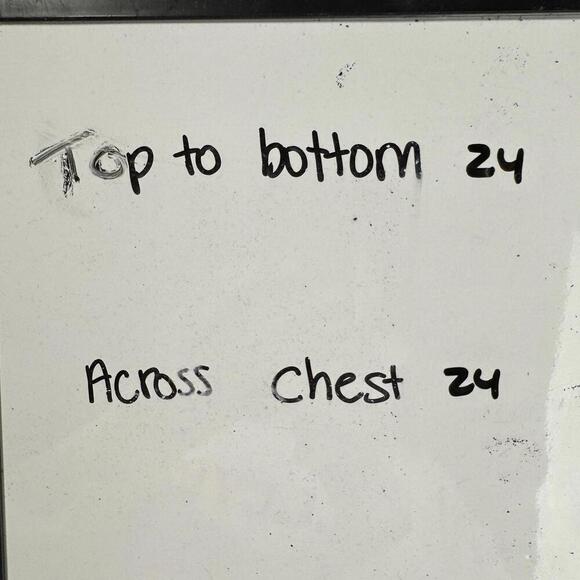 Top to bottom 24
Across chest 24